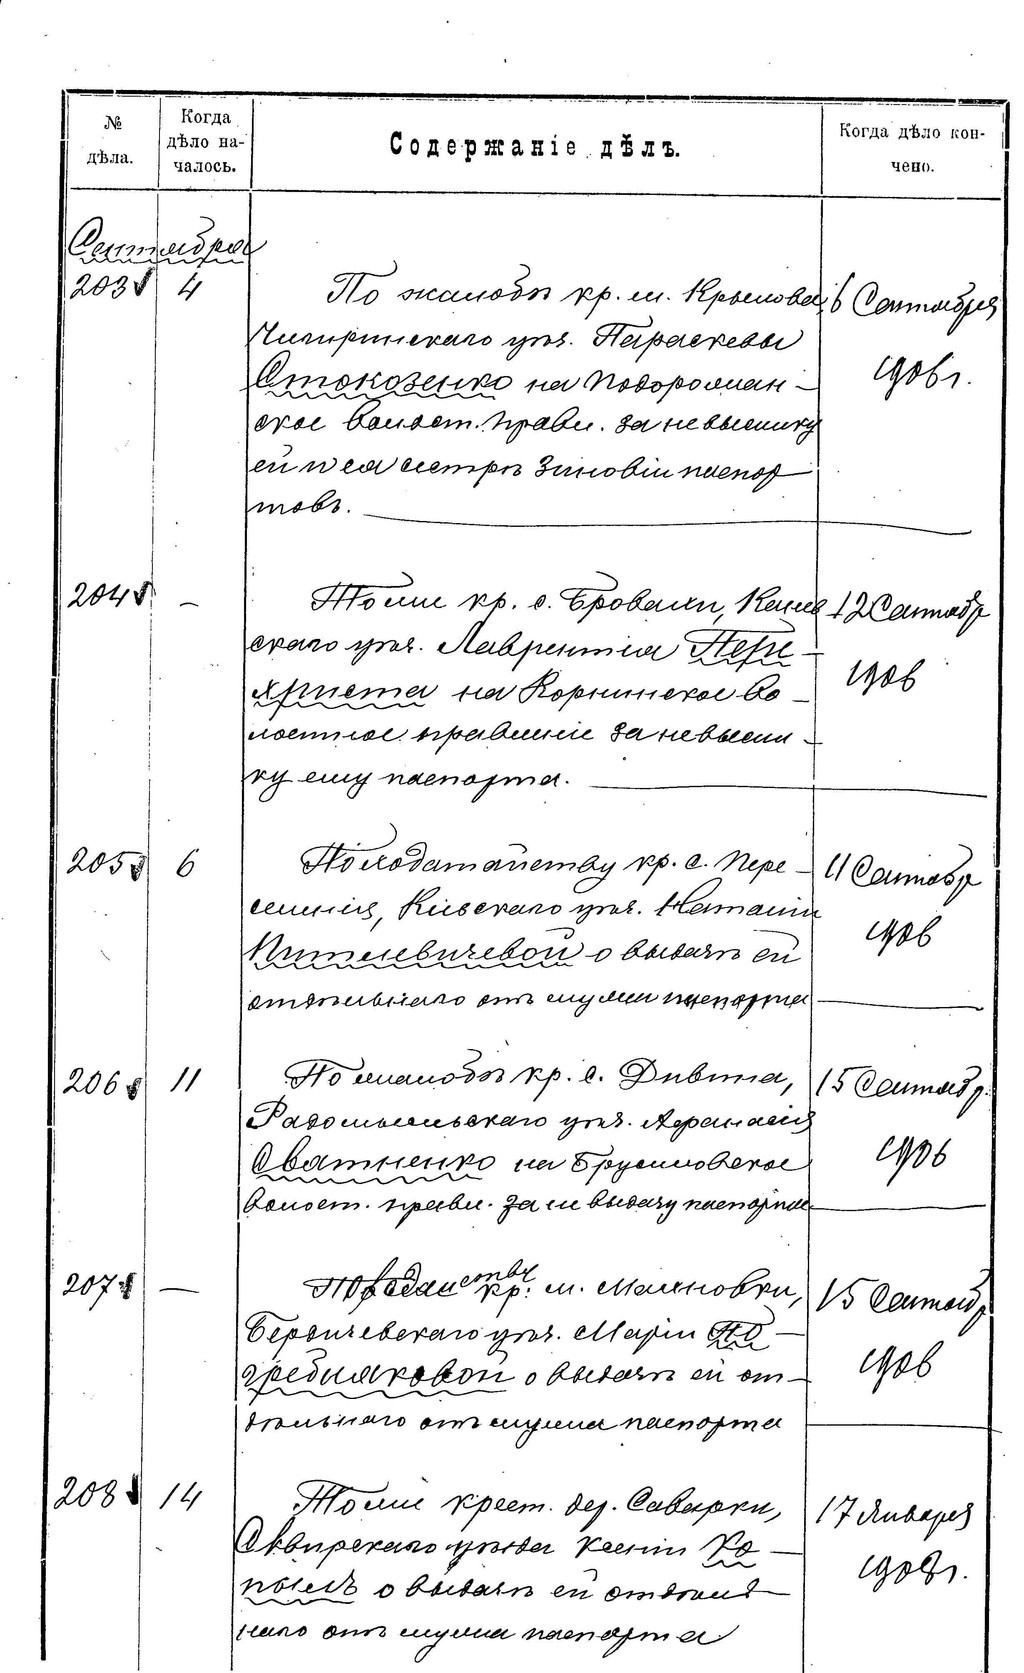 № дѣла.
Когда дѣло началось.
Содержаніе дѣлъ.
Когда дѣло кончено.
Сентября
203 4 По жалобѣ кр. м. Крылова, 6 Сентября
Чигиринскаго уѣз. Параскевы 1906 г.
Стокозенко на Подороман-
ское волост. правл. за невысылку
ей и ея сестрѣ Зиновіи паспор
товъ.
204 — Тоже кр. с. Бровахи, Канев 12 Сентябр
скаго уѣз. Лаврентія Пери- 1906
христа на Корнинское во-
лостное правленіе за невысыл-
ку ему паспорта.
205 6 По ходатайству кр. с. Пере- 11 Сентябр
селенія, Кіевскаго уѣз. Наталіи 1906
о выдачѣ ей
отдѣльнаго отъ мужа паспорта
206 11 По жалобѣ кр. с. Дивина, 15 Сентябр.
Радомысльскаго уѣз. Афанасія 1906
Сватненко на Брусиловское
волост. правл. за невыдачу паспорта
207 — По ходатайству кр. м. Махновки, 15 Сентябр
Бердичевскаго уѣз. Маріи По- 1906
гребняковой о выдачѣ ей от-
дѣльнаго отъ мужа паспорта
208 14 Тоже крест. дер. Саварки, 17 Января
Сквирскаго уѣзда Ксеніи Ко- 1908 г.
пылъ о выдачѣ ей отдѣль
наго отъ мужа паспорта